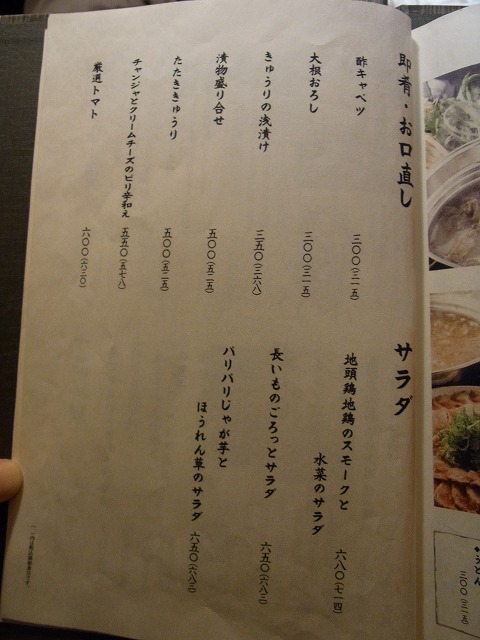 即肴・お口直し
酢キャベツ 三〇〇(三一五)
大根おろし 三〇〇(三一五)
きゅうりの浅漬け 三五〇(三六八)
漬物盛り合せ 五〇〇(五二五)
たたききゅうり 五〇〇(五二五)
チャンジャとクリームチーズのピリ辛和え 五五〇(五七八)
厳選トマト 六〇〇(六三〇)
サラダ
地頭鶏地鶏のスモークと
水菜のサラダ 六八〇(七一四)
長いものごろっとサラダ 六五〇(六八三)
パリパリじゃが芋と
ほうれん草のサラダ 六五〇(六八三)
うどん
三〇〇(三一五)